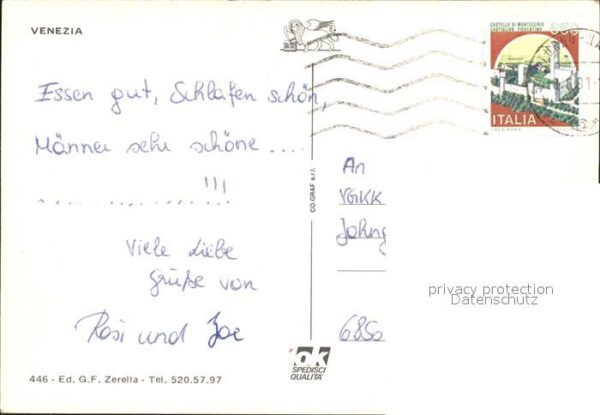 VENEZIA
CASTELLO DI MONTECCHIO
CASTIGLION FIORENTINO
650
ITALIA
Essen gut, Schlafen schön,
Männer sehr schöne ....
............ !!!
Viele Liebe
Grüße von
Rosi und Joe
CO.GRAF s.r.l.
An
VGKK
6850
privacy protection
Datenschutz
ok
SPEDISCI
QUALITA'
446 - Ed. G.F. Zerella - Tel. 520.57.97